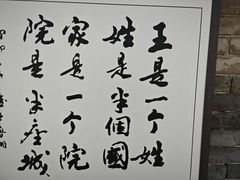 王是一个姓
姓是半個國
家是一个院
院是半座城